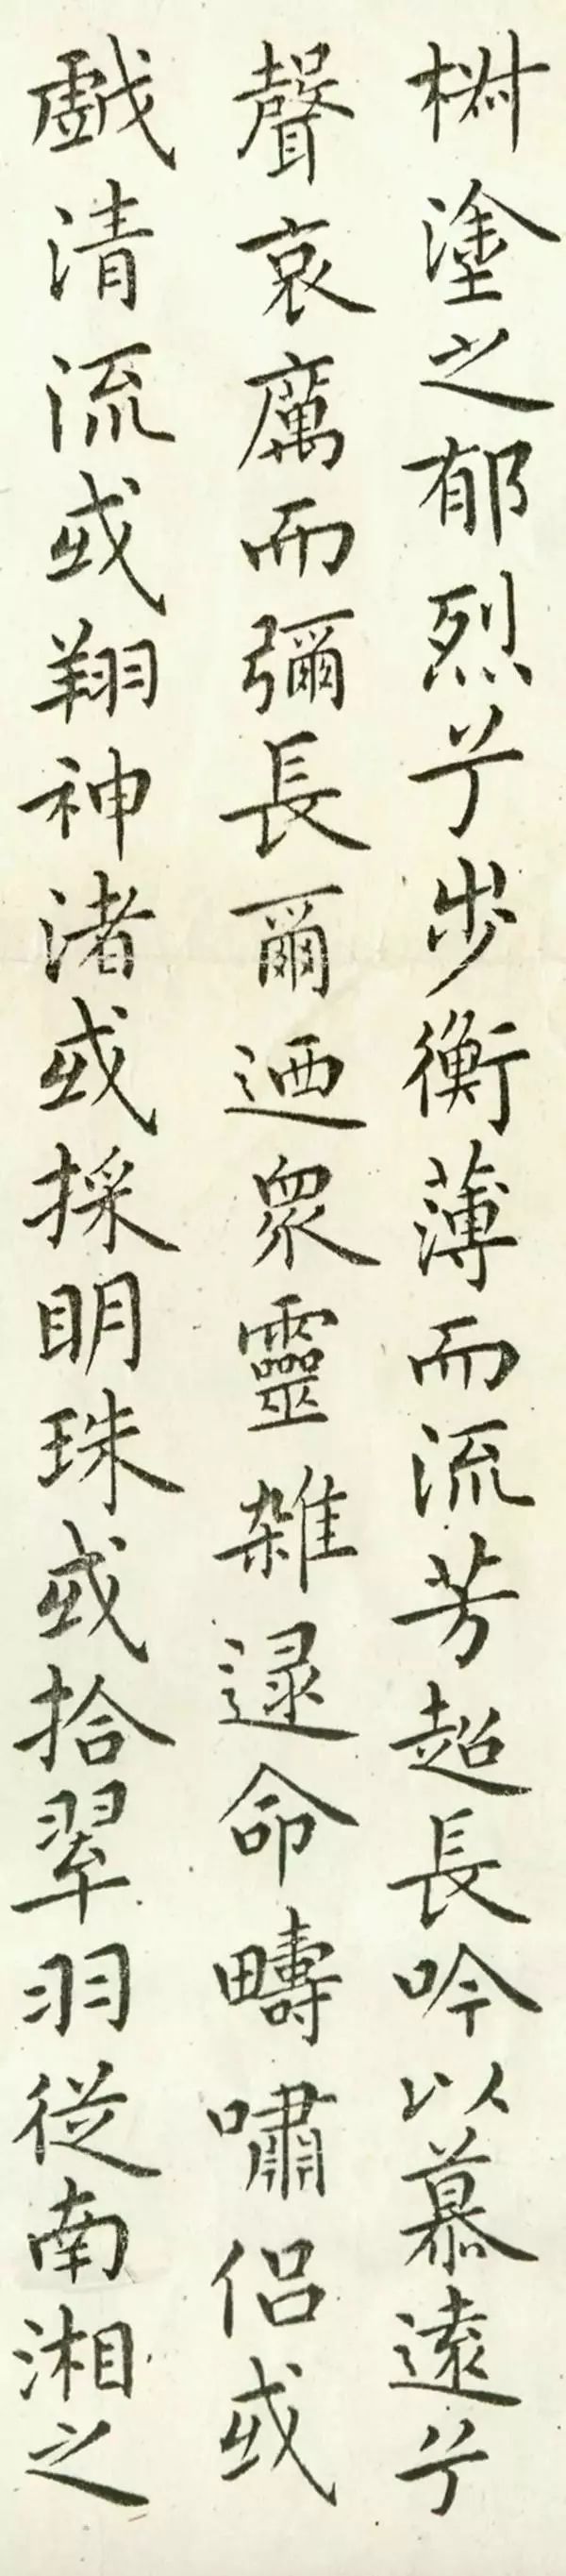 椒塗之郁烈兮步衡薄而流芳超長吟以慕遠兮
聲哀厲而彌長爾迺眾靈雜遝命疇嘯侶或
戲清流或翔神渚或採明珠或拾翠羽從南湘之